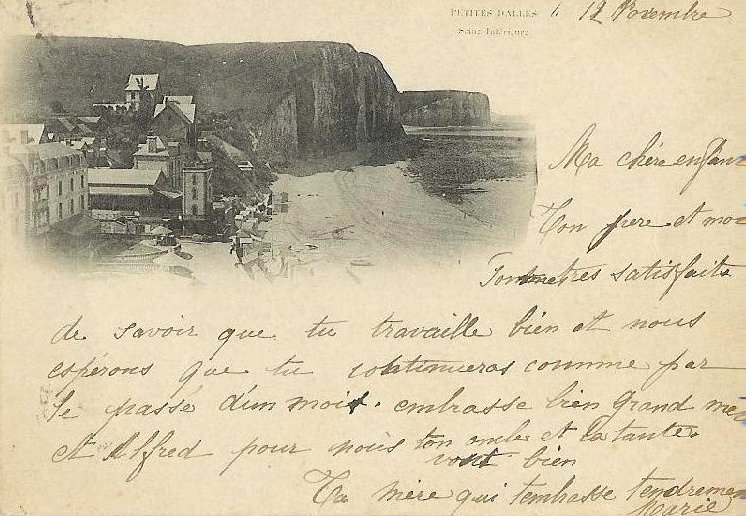 PETITES DALLES
Seine Inférieure
12 Novembre
Ma chère enfan
Ton père et moi
très satisfaits
de savoir que tu travaille bien et nous
espérons que tu continueras comme par
le passé d'un mois. embrasse bien Grand mer
et Alfred pour nous ton oncle et ta tante
vont bien
Ta mère qui t'embrasse tendremen
Marie